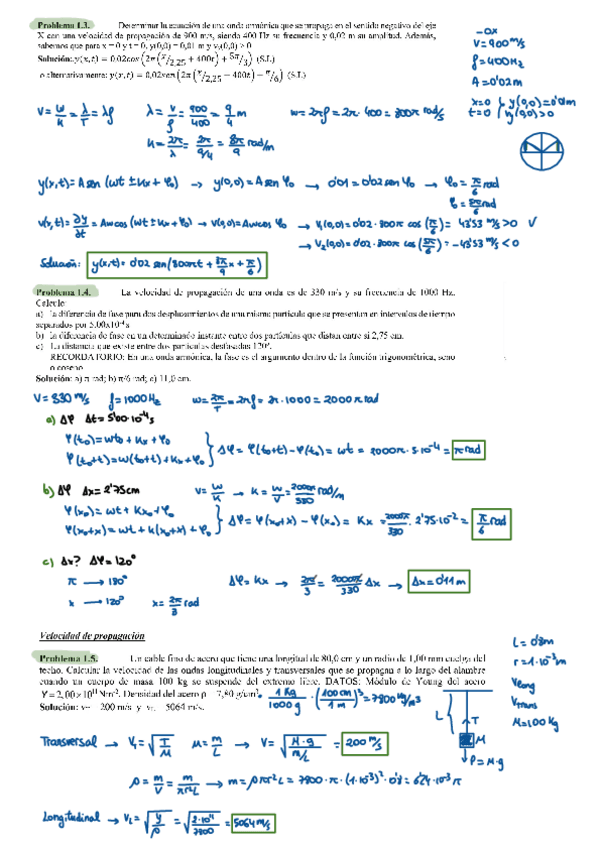 Problema 1.3. Determinar la ecuación de una onda armónica que se propaga en el sentido negativo del eje
X con una velocidad de propagación de 900 m/s, siendo 400 Hz su frecuencia y 0,02 m su amplitud. Además,
sabemos que para x = 0 y t = 0, y(0,0) = 0,01 m y v(0,0) > 0
Solución: y(x,t) = 0,02cos(2π(x/2,25 + 400t) + 5π/3) (S.I.)
o alternativamente: y(x,t) = 0,02sen(2π(x/2,25 − 400t) − π/6) (S.I.)
-OX
V=900 m/s
f=400Hz
A=0'02m
x=0 y(0,0)=0'01m
t=0 v(0,0)>0
V = w/k = λ/T = λf λ = v/f = 900/400 = 9/4 m w=2πf=2π·400=800π rad/s
k = 2π/λ = 2π/9/4 = 8π/9 rad/m
y(x,t)=A sen (wt ± kx + φ₀) → y(0,0)=A sen φ₀ → 0'01=0'02 sen φ₀ → φ₀ = π/6 rad
φ₀ = 5π/6 rad
v(x,t)= ∂y/∂t = Aw cos (wt ± kx + φ₀) → v(0,0)=Aw cos φ₀ → v₁(0,0)=0'02·800π cos (π/6) = 43'53 m/s >0 V
→ v₂(0,0)=0'02·800π cos (5π/6) = -43'53 m/s <0
Solución: y(x,t) = 0'02 sen(800πt + 8π/9 x + π/6)
Problema 1.4. La velocidad de propagación de una onda es de 330 m/s y su frecuencia de 1000 Hz.
Calcule:
a) la diferencia de fase para dos desplazamientos de una misma partícula que se presentan en intervalos de tiempo
separados por 5,00x10⁻⁴ s
b) la diferencia de fase en un determinado instante entre dos partículas que distan entre sí 2,75 cm.
c) La distancia que existe entre dos partículas desfasadas 120°.
RECORDATORIO: En una onda armónica, la fase es el argumento dentro de la función trigonométrica, seno
o coseno.
Solución: a) π rad; b) π/6 rad; c) 11,0 cm.
V=330 m/s f=1000Hz w= 2π/T = 2πf=2π·1000=2000π rad
a) Δφ Δt=5'00·10⁻⁴s
φ(t₀)=wt₀+kx+φ₀
φ(t₀+t)=w(t₀+t)+kx+φ₀ } Δφ = φ(t₀+t)−φ(t₀) = wt = 2000π·5·10⁻⁴ = π rad
b) Δφ Δx=2'75cm V= w/k → k = w/v = 2000π/330 rad/m
φ(x₀)=wt+kx₀+φ₀
φ(x₀+x)=wt+k(x₀+x)+φ₀ } Δφ = φ(x₀+x)−φ(x₀) = kx = 2000π/330 · 2'75·10⁻² = π/6 rad
c) Δx? Δφ=120°
π → 180° Δφ=kx → 2π/3 = 2000π/330 Δx → Δx=0'11 m
x → 120° x= 2π/3 rad
Velocidad de propagación
Problema 1.5. Un cable fino de acero que tiene una longitud de 80,0 cm y un radio de 1,00 mm cuelga del
techo. Calcula: la velocidad de las ondas longitudinales y transversales que se propagan a lo largo del alambre
cuando un cuerpo de masa 100 kg se suspende del extremo libre. DATOS: Módulo de Young del acero
Y = 2,00x10¹¹ Nm⁻². Densidad del acero ρ = 7,80 g/cm³ · 1 Kg/1000 g · (100 cm/1 m)³ = 7800 kg/m³
Solución: v = 200 m/s y v = 5064 m/s.
L = 0'8m
r = 1·10⁻³m
Vlong
Vtrans
M=100Kg
L
T
M
P=M·g
Transversal → V₁ = √T/μ μ= m/L → V= √M·g/m/L = 200 m/s
ρ = m/V = m/πr²L → m = ρπr²L = 7800·π·(1·10⁻³)²·0'8 = 6'24·10⁻³π
Longitudinal → V_L = √Y/ρ = √2·10¹¹/7800 = 5064 m/s